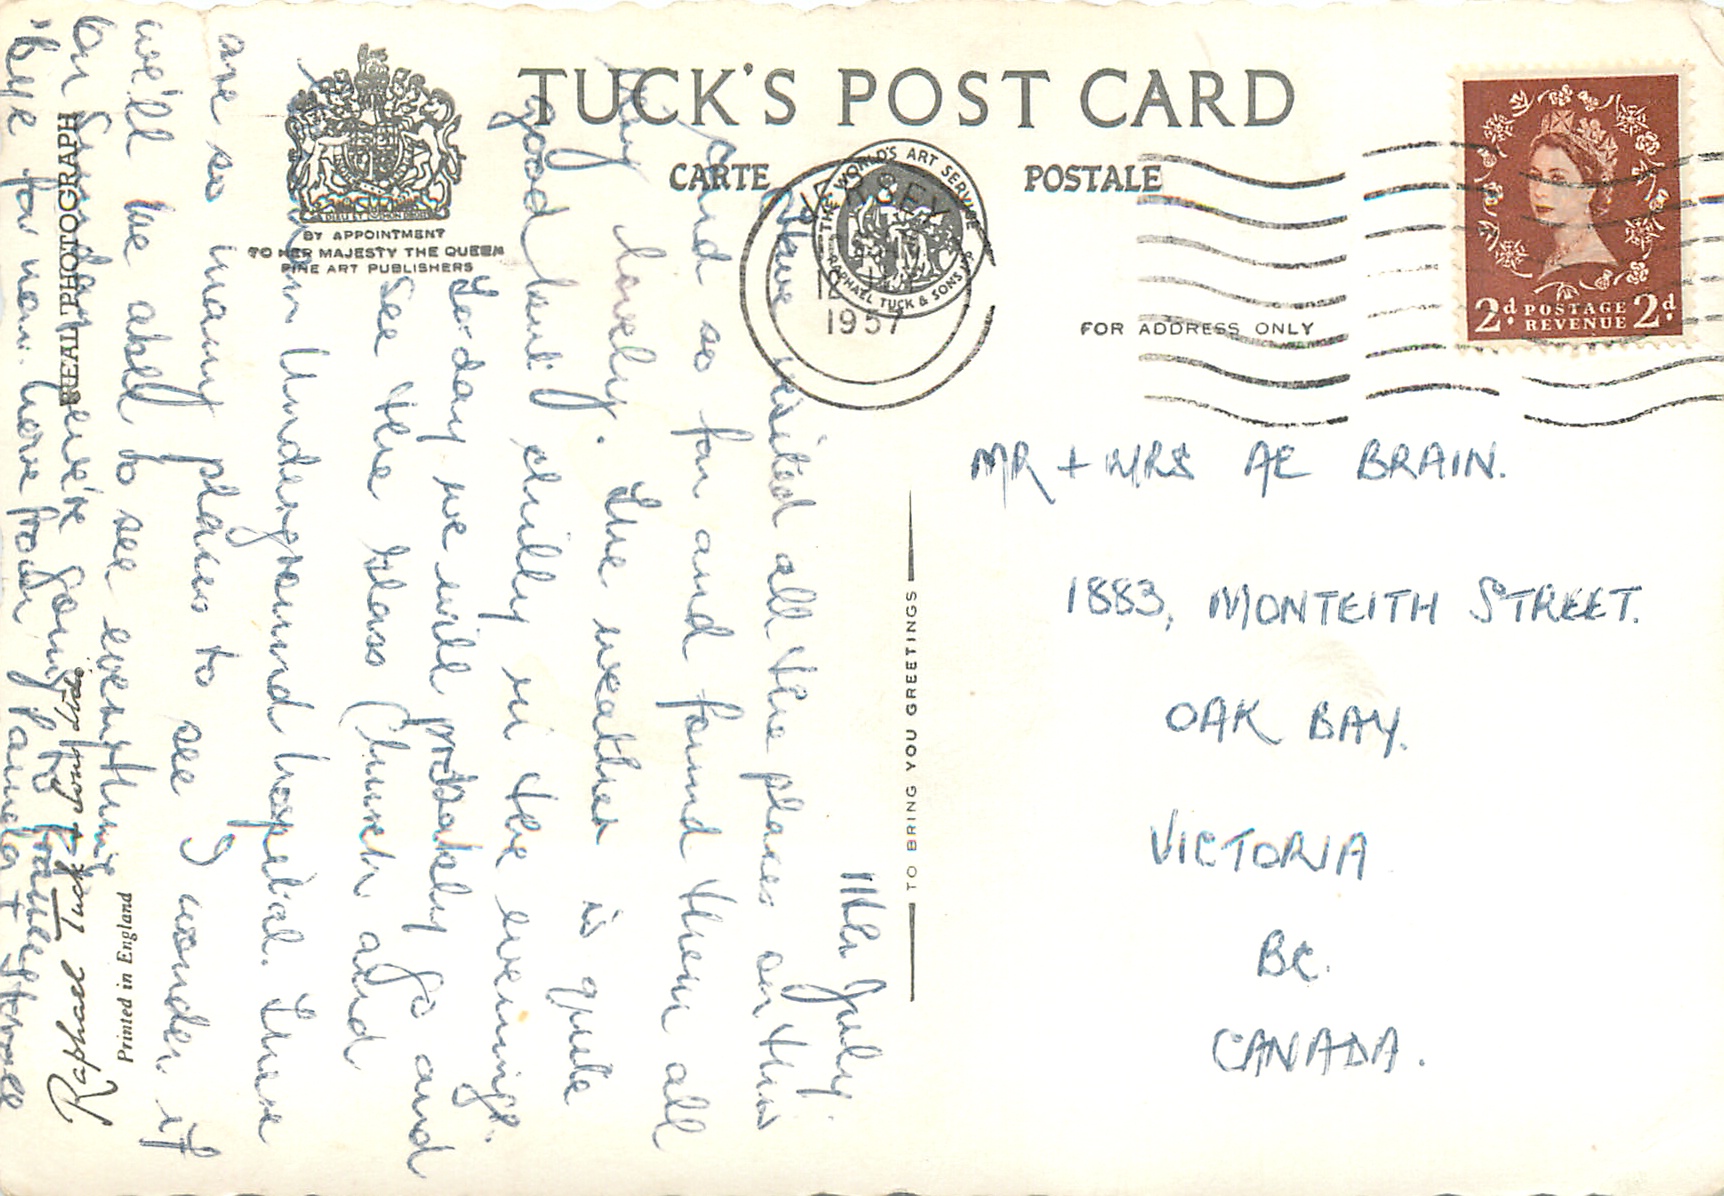 TUCK'S POST CARD
CARTE POSTALE
BY APPOINTMENT
TO HER MAJESTY THE QUEEN
FINE ART PUBLISHERS
DIEU ET MON DROIT
THE WORLD'S ART SERVICE
RAPHAEL TUCK & SONS LTD
JERSEY
1957
FOR ADDRESS ONLY
2d POSTAGE 2d
REVENUE
11th July.
Have visited all the places on this
card so far and found them all
very lovely. The weather is quite
good but chilly in the evenings.
To-day we will probably go and
see the Glass Church and
German Underground hospital. There
are so many places to see I wonder if
we'll be abel to see everything
On Sunday we're going to
'bye for now. Love from Pamela +
MR + MRS AE BRAIN.
1883, MONTEITH STREET.
OAK BAY.
VICTORIA
BC.
CANADA.
TO BRING YOU GREETINGS
REAL PHOTOGRAPH
Raphael Tuck & Sons Ltd.
Printed in England